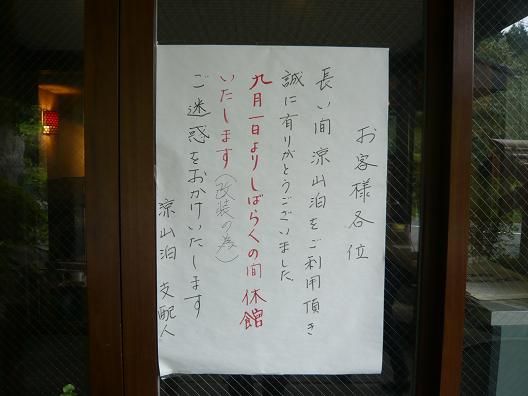 お客様各位
長い間涼山泊をご利用頂き
誠に有りがとうございました。
九月一日よりしばらくの間休館
いたします(改装の為)
ご迷惑をおかけいたします
涼山泊 支配人